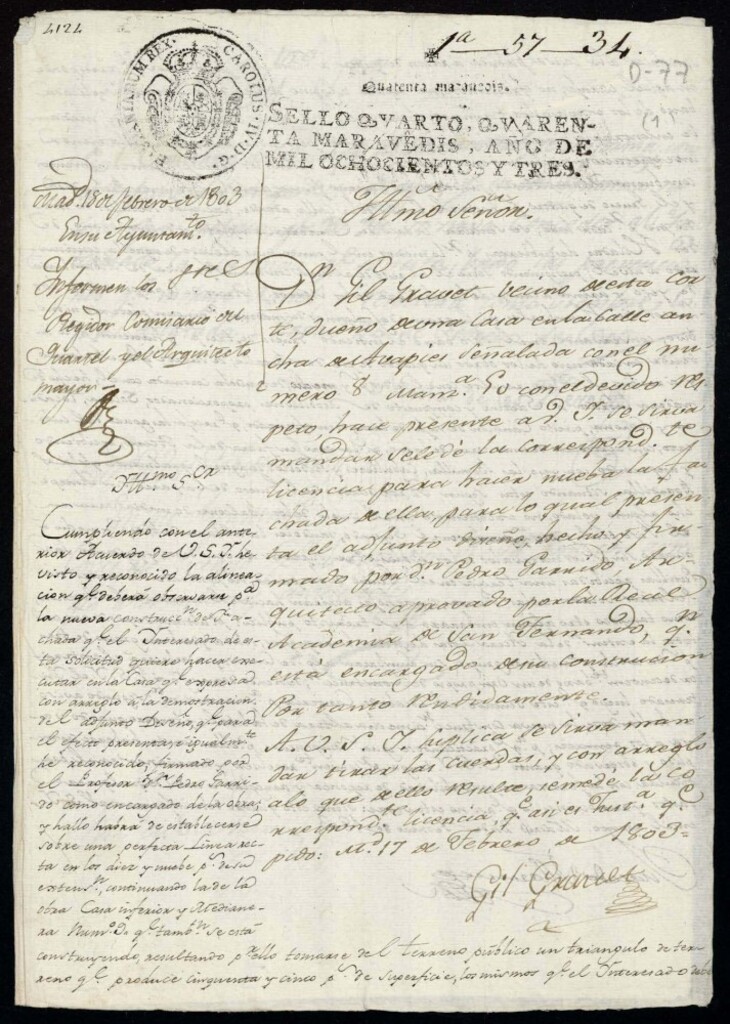 4124
1ª—57—34.
D-77
(1)
HISPANIARUM REX. CAROLUS IV D.G.
Quarenta maravedis.
SELLO QVARTO, QVAREN-
TA MARAVEDIS, AÑO DE
MIL OCHOCIENTOS Y TRES.
Mad.d 18 de febrero de 1803
En su Ayuntam.to
Informen los sres
Regidor Comisario del
Quartel y el Arquitecto
mayor
Illmo Señor.
Dn Gil Gravet vecino de esta cor
te, dueño de una Casa en la Calle an
cha de Avapies señalada con el nu
mero 8 Manz.ª 50 con el devido res
peto, hace presente a V. I. se sirva
mandar sele dé la correspond.te
licencia para hacer nueba la fa
chada de ella, para lo qual presen
ta el adjunto diseño, hecho y fir
mado por dn Pedro Garrido, Ar
quitecto aprovado por la Real
Academia de San Fernando, qn
está encargado de su construccion
Por tanto rendidamente.
A. V. S. I. suplica se sirva man
dar tirar las cuerdas, y con arreglo
a lo que de ello resulte, se me de la co
rrespond.te licencia, qe asi es Just.ª qe
pido: Md 17 de Febrero de 1803=
Gil Gravet
Illmo Sor
Cumpliendo con el ante
rior Acuerdo de V.S.I. he
visto y reconocido la alinea
cion qe deberá observarse pª
la nueva construcn de Fa
chada qe el Interesado de es
ta solicitud quiere hacer exe
cutar en la Casa qe expresa
con arreglo á la demostracion
del adjunto Diseño, qe para
el efecto presenta, é igualmte
he reconocido, firmado por
el Profesor Dn Pedro Garri
do como encargado de la obra;
y hallo habrá de establecerse
sobre una perfecta Linea rec
ta en los diez y nuebe ps de su
extensn, continuando la de la
otra Casa inferior y Medianera
Num.o qe tambn se está
construyendo, resultando pª ello tomarse del terreno público un triangulo de ter
reno qe produce cinquenta y cinco ps de superficie, los mismos qe el Interesado debe